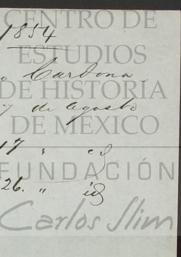 CENTRO DE
1854
ESTUDIOS
Cardona
DE HISTORIA
7 de Agosto
DE MÉXICO
17 " id
FUNDACIÓN
26. " id
Carlos Slim